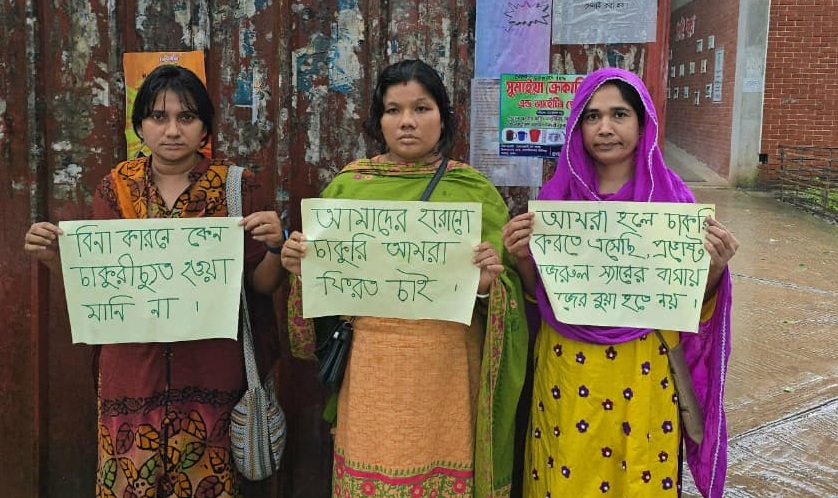 বিনা কারনে কেন
চাকুরীচ্যুত হওয়া
মানি না ।
আমাদের হারানো
চাকুরি আমরা
ফিরত চাই ।
আমরা হলে চাকুরি
করতে এসেছি, প্রভোস্ট
নজরুল স্যারের বাসায়
কাজের বুয়া হতে নয় ।
সুমাইয়া ক্রোকারিজ